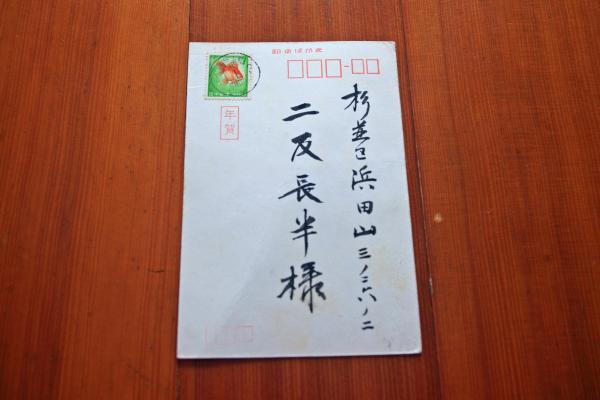 郵便はがき
年賀
杉並区浜田山三ノ三六ノ二
二反長半様